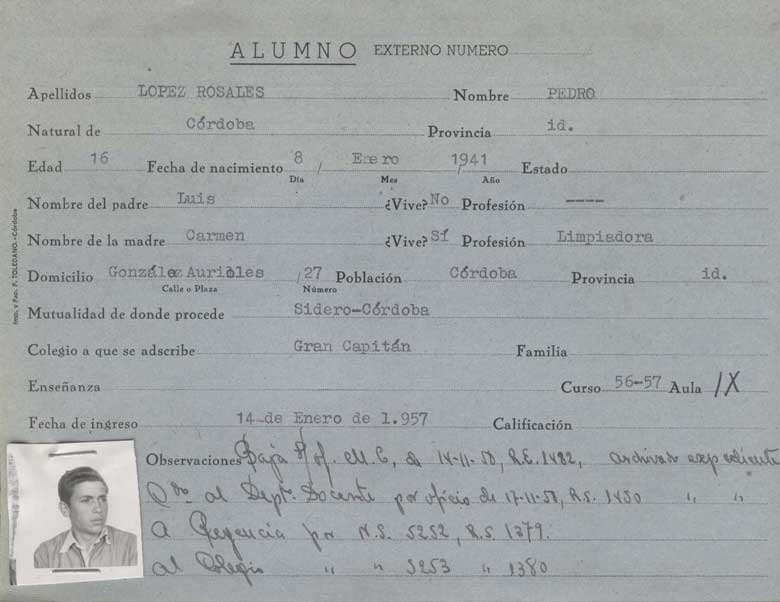 ALUMNO EXTERNO NUMERO
Apellidos LOPEZ ROSALES Nombre PEDRO
Natural de Córdoba Provincia id.
Edad 16 Fecha de nacimiento 8 / Enero / 1941 Estado
Día Mes Año
Nombre del padre Luis ¿Vive? No Profesión ----
Nombre de la madre Carmen ¿Vive? Sí Profesión Limpiadora
Domicilio González Aurioles / 27 Población Córdoba Provincia id.
Calle o Plaza Número
Mutualidad de donde procede Sidero-Córdoba
Colegio a que se adscribe Gran Capitán Familia
Enseñanza Curso 56-57 Aula IX
Fecha de ingreso 14 de Enero de 1.957 Calificación
Observaciones Baja Prof. M.C, 14-11-58, R.E. 1482, archivar expediente
al Dept. Docente por oficio de 17-11-58, R.S. 1430 " "
A Regencia por N.S. 5252, R.S. 1379.
al Colegio " " 5253 " 1380
Imp. y Pap. F. TOLEDANO.-Córdoba